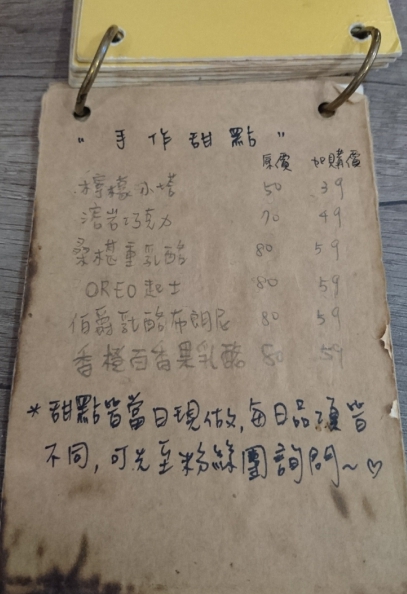 "手作甜點"
原價 加購價
檸檬小塔 50 39
溶岩巧克力 70 49
桑椹重乳酪 80 59
OREO起士 80 59
伯爵乳酪布朗尼 80 59
香橙百香果乳酪 80 59
*甜點皆當日現做,每日品項皆
不同,可先至粉絲團詢問~♡